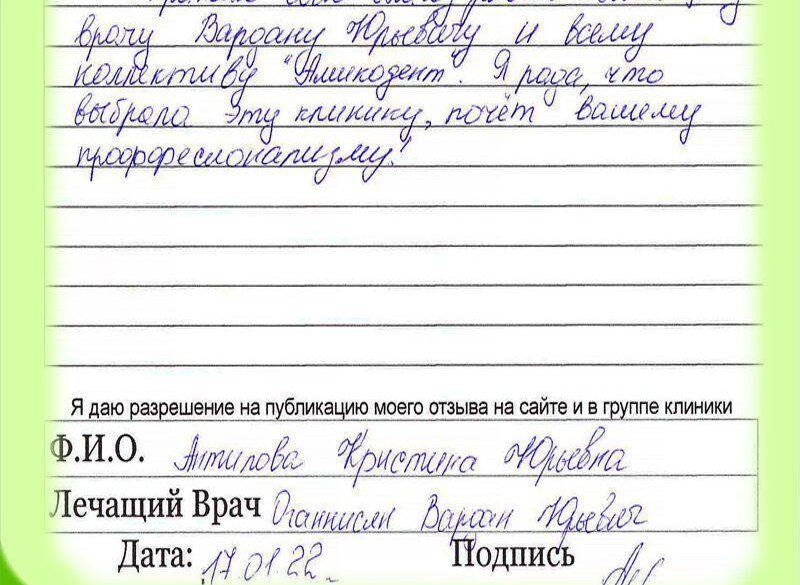 врачу Вардану Юрьевичу и всему
коллективу "Амикодент". Я рада, что
выбрала эту клинику, почёт вашему
профффесионализму!
Я даю разрешение на публикацию моего отзыва на сайте и в группе клиники
Ф.И.О. Антипова Кристина Юрьевна
Лечащий Врач Оганнисян Вардан Юрьевич
Дата: 17.01.22 Подпись